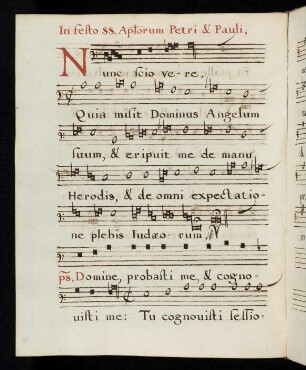 In festo SS. Aplorum Petri & Pauli,
Nunc scio ve-re,
Quia misit Dominus Angelum
suum, & eripuit me de manu
Herodis, & de omni expectatio-
ne plebis Iudæo-rum,
ps. Domine, probasti me, & cogno-
uisti me: Tu cognouisti sessio-